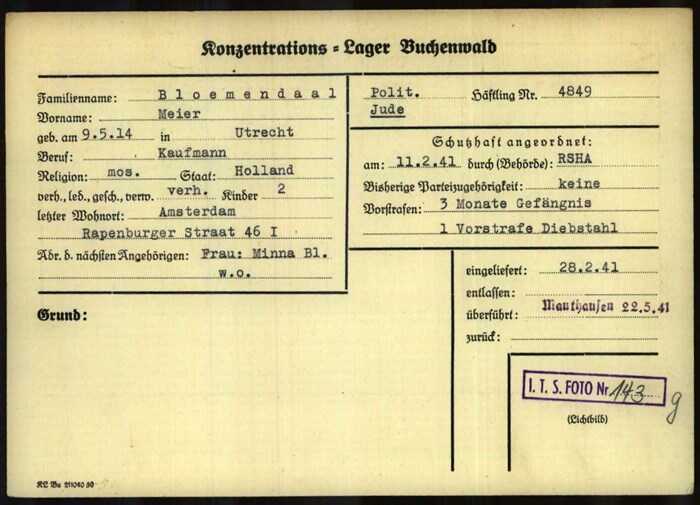 Konzentrations-Lager Buchenwald
Familienname: Bloemendaal
Vorname: Meier
geb. am 9.5.14 in Utrecht
Beruf: Kaufmann
Religion: mos. Staat: Holland
verh., led., gesch., verw. verh. Kinder 2
letzter Wohnort: Amsterdam
Rapenburger Straat 46 I
Adr. d. nächsten Angehörigen: Frau: Minna Bl.
w.o.
Grund:
Polit. Häftling Nr. 4849
Jude
Schutzhaft angeordnet:
am: 11.2.41 durch (Behörde): RSHA
Bisherige Parteizugehörigkeit: keine
Vorstrafen: 3 Monate Gefängnis
1 Vorstrafe Diebstahl
eingeliefert: 28.2.41
entlassen:
überführt: Mauthausen 22.5.41
zurück:
I.T.S. FOTO Nr. 143
g
(Lichtbild)